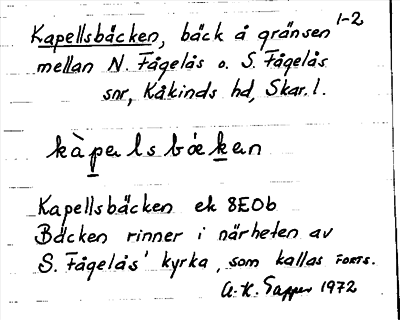 Kapellsbäcken, bäck å gränsen 1-2
mellan N. Fågelås o. S. Fågelås
snr, Kåkinds hd, Skar. l.
kàpels bæken
Kapellsbäcken ek 8E0b
Bäcken rinner i närheten av
S. Fågelås' kyrka, som kallas FORTS.
A.K. 1972